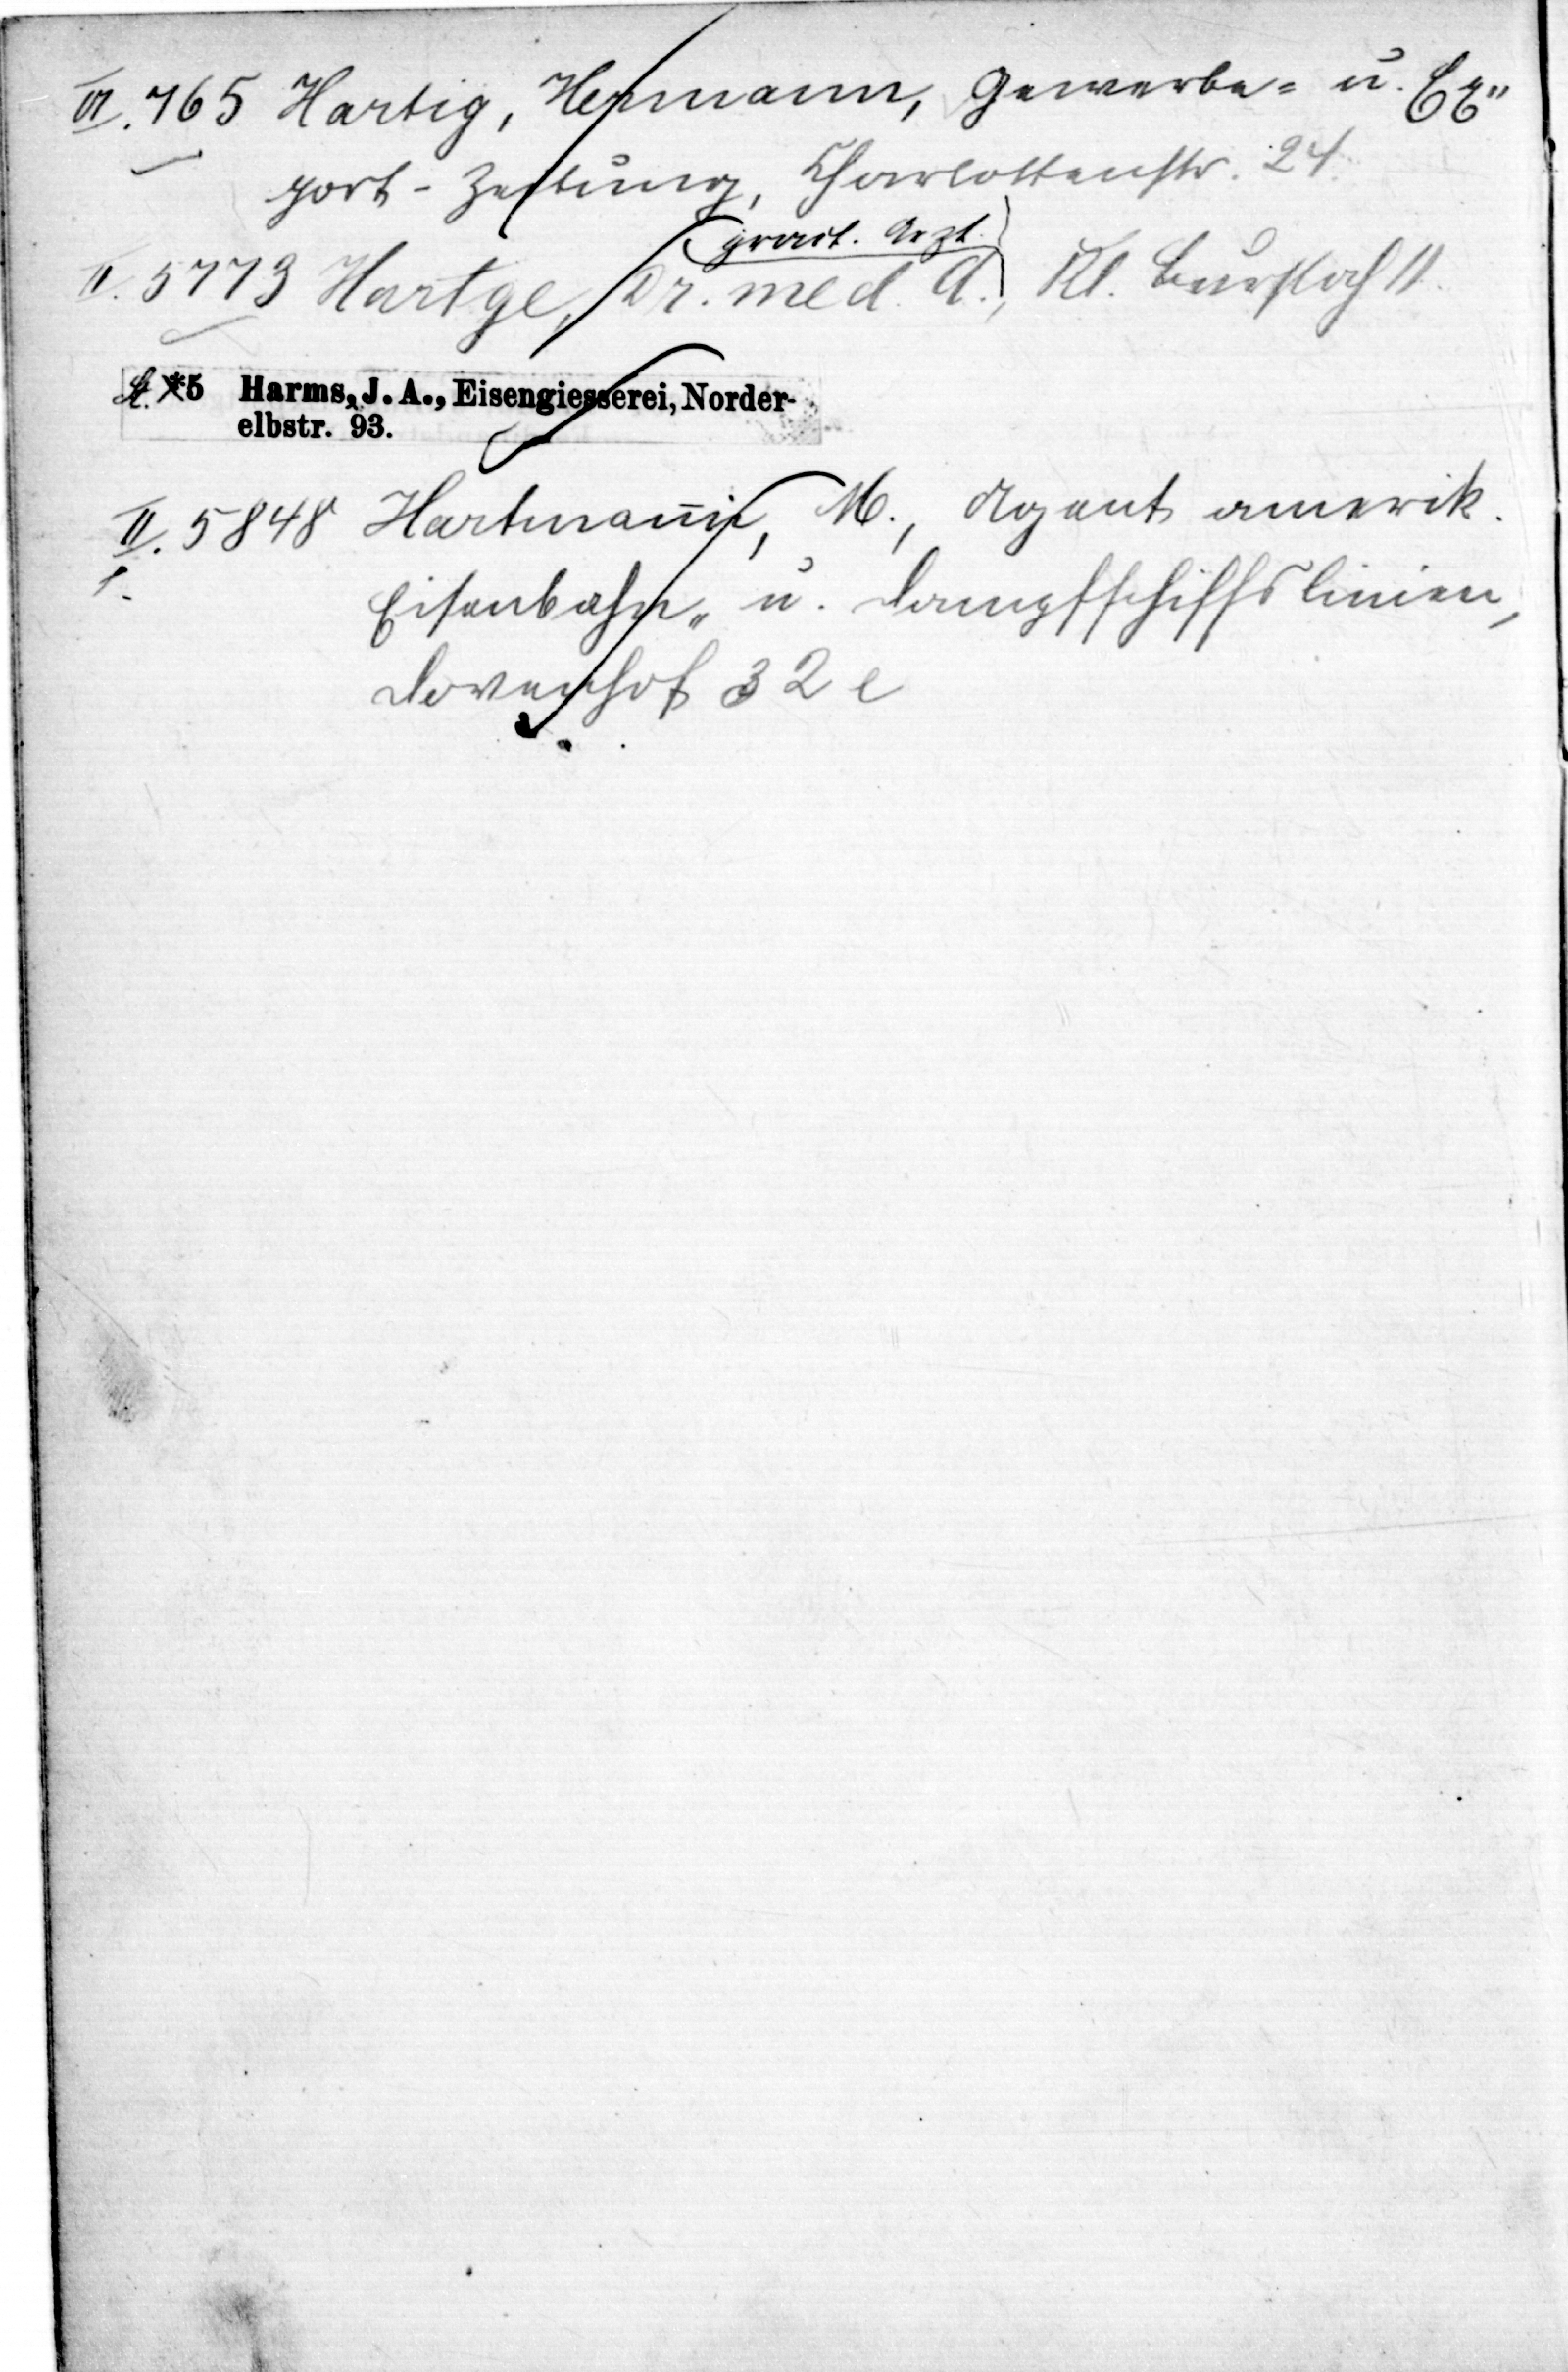 VI. 765 Hartig, Hermann, Gewerbe= u. Ex"
port-Zeitung, Charlottenstr. 24.
pract. Arzt.
II. 5773 Hartge, Dr. med. A., Kl. Burstah 11.
*5 Harms, J. A., Eisengiesserei, Norder-
elbstr. 93.
II. 5848 Hartmann, M., Agent amerik.
Eisenbahn„ u. Dampfschiffslinien,
Dovenhof 32 e